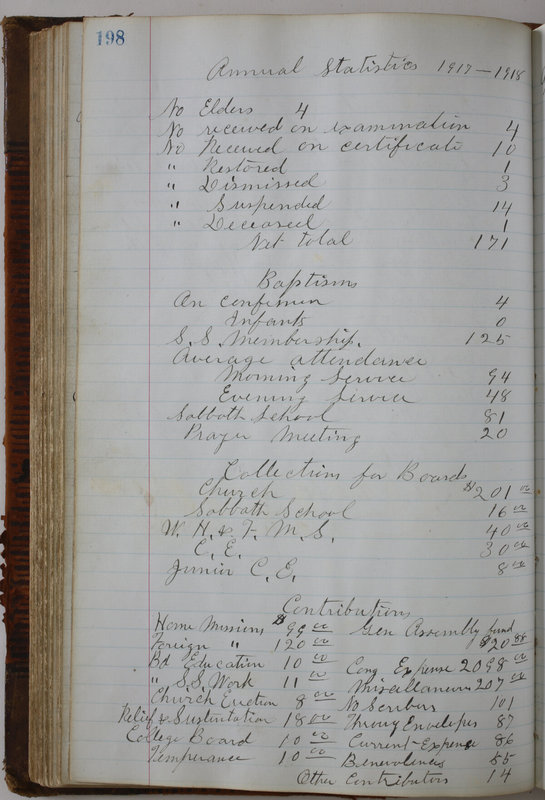 198
Annual Statistics 1917-1918
No Elders 4
No received on examination 4
No Received on certificate 10
" Restored 1
" Dismissed 3
" Suspended 14
" Deceased 1
Net total 171
Baptisms
On confession 4
Infants 0
S.S. Membership. 125
Average attendance
Morning Service 94
Evening Service 48
Sabbath School 81
Prayer Meeting 20
Collections for Boards
Church $201 00
Sabbath School 16 00
W. H. & F. M. S. 40 00
C. E. 30 00
Junior C. E. 8 00
Contributions
Home Missions $99 00 Gen Assembly fund
Foreign " 120 00 $20 88
Bd Education 10 00 Cong Expense 2098 00
" S.S. Work 11 00 Miscellaneous 207 00
Church Erection 8 00 No Scribers 101
Relief & Sustentation 18 00 Throug Envelopes 87
College Board 10 00 Current Expense 86
Temperance 10 00 Benevolences 55
Other Contributors 14